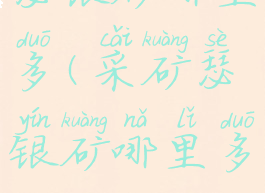 duō cǎi kuàng sè
多（采矿瑟
yín kuàng nǎ lǐ duō
银矿哪里多